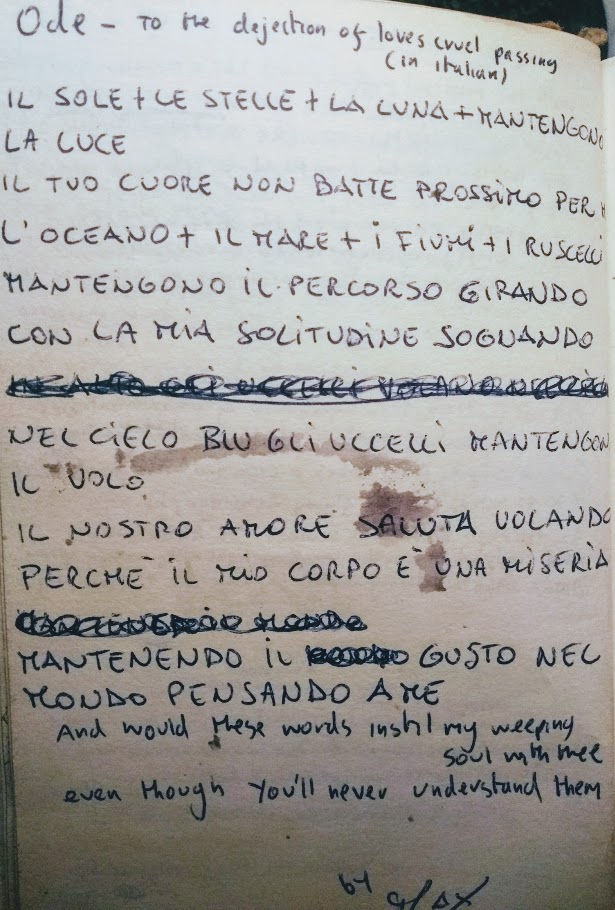 Ode - To the dejection of loves cruel passing
(in italian)
IL SOLE + LE STELLE + LA LUNA + MANTENGONO
LA LUCE
IL TUO CUORE NON BATTE PROSSIMO PER
L'OCEANO + IL MARE + I FIUMI + I RUSCELLI
MANTENGONO IL PERCORSO GIRANDO
CON LA MIA SOLITUDINE SOGNANDO
NEL CIELO BLU GLI UCCELLI MANTENGON
IL VOLO
IL NOSTRO AMORE SALUTA VOLANDO
PERCHÉ IL MIO CORPO È UNA MISERIA
MANTENENDO IL GUSTO NEL
MONDO PENSANDO A ME
And would these words instil my weeping
soul with thee
even though you'll never understand them
by